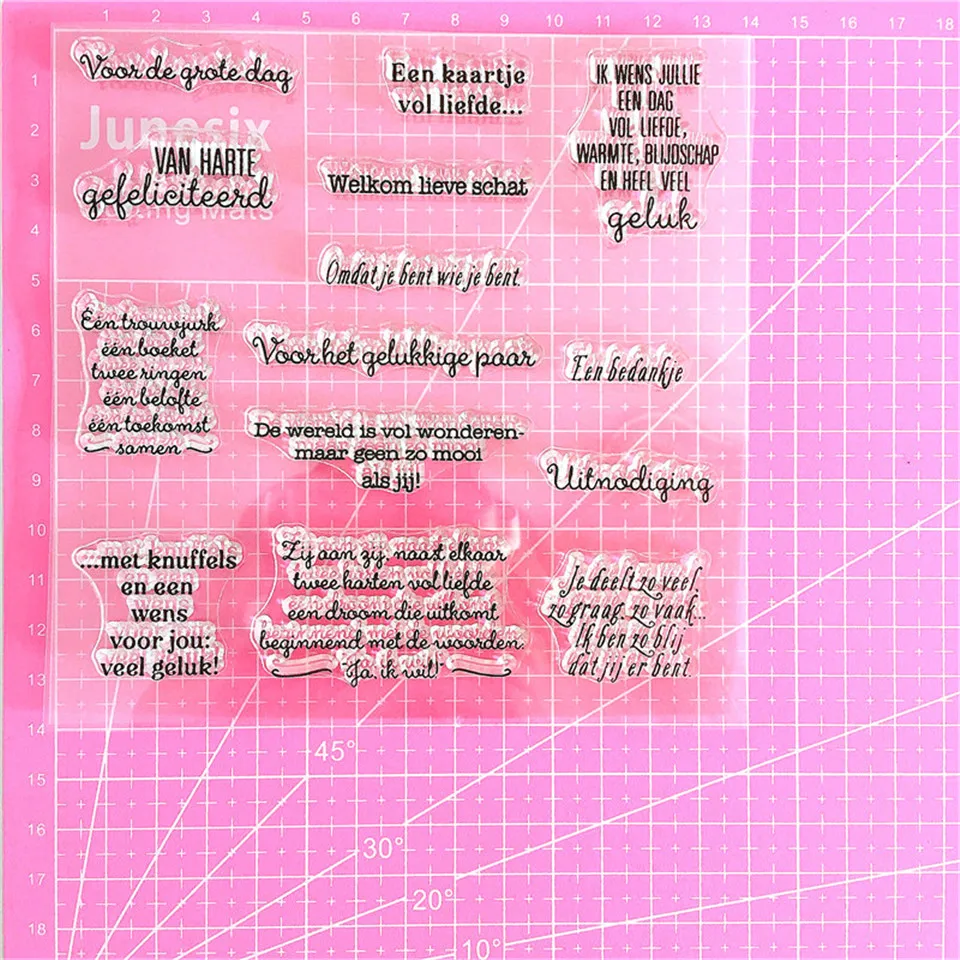 1 2 3 4 5 6 7 8 9 10 11 12 13 14 15 16 17 18
1
2
3
4
5
6
7
8
9
10
11
12
13
14
15
16
17
18
Voor de grote dag
Een kaartje
vol liefde...
IK WENS JULLIE
EEN DAG
VOL LIEFDE,
WARMTE, BLIJDSCHAP
EN HEEL VEEL
geluk
Junesix
Mats
VAN HARTE
gefeliciteerd
Welkom lieve schat
Omdat je bent wie je bent.
Eén trouwjurk
één boeket
twee ringen
één belofte
één toekomst
samen
Voor het gelukkige paar
Een bedankje
De wereld is vol wonderen-
maar geen zo mooi
als jij!
Uitnodiging
...met knuffels
en een
wens
voor jou:
veel geluk!
Zij aan zij, naast elkaar
twee harten vol liefde
een droom die uitkomt
beginnend met de woorden:
"Ja, ik wil!"
Je deelt zo veel,
zo graag, zo vaak...
Ik ben zo blij
dat jij er bent.
45°
30°
20°
10°